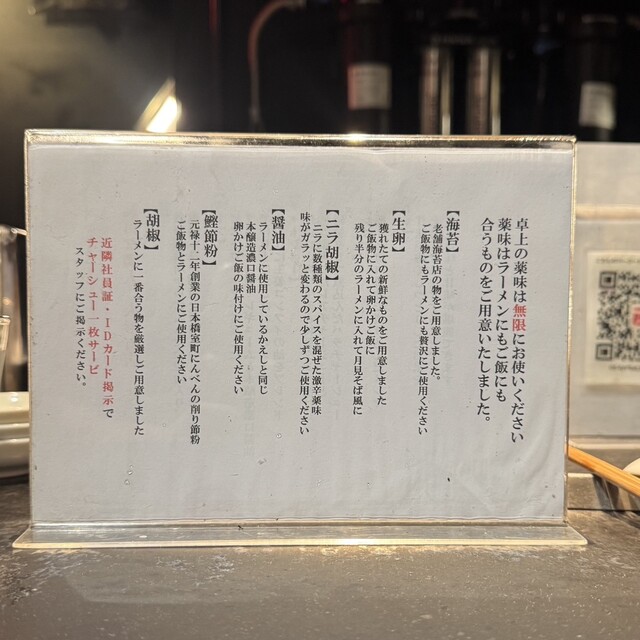 卓上の薬味は無限にお使いください
薬味はラーメンにもご飯にも
合うものをご用意いたしました。
【海苔】
老舗海苔店の物をご用意しました。
ご飯物にもラーメンにも贅沢にご使用ください
【生卵】
獲れたての新鮮なものをご用意しました
ご飯物に入れて卵かけご飯に
残り半分のラーメンに入れて月見そば風に
【ニラ胡椒】
ニラに数種類のスパイスを混ぜた激辛薬味
味がガラッと変わるので少しずつご使用ください
【醤油】
ラーメンに使用しているかえしと同じ
本醸造濃口醤油
卵かけご飯の味付けにご使用ください
【鰹節粉】
元禄十二年創業の日本橋室町にんべんの削り節粉
ご飯物とラーメンにご使用ください
【胡椒】
ラーメンに一番合う物を厳選しご用意しました
近隣社員証・IDカード掲示で
チャーシュー一枚サービ
スタッフにご掲示ください。